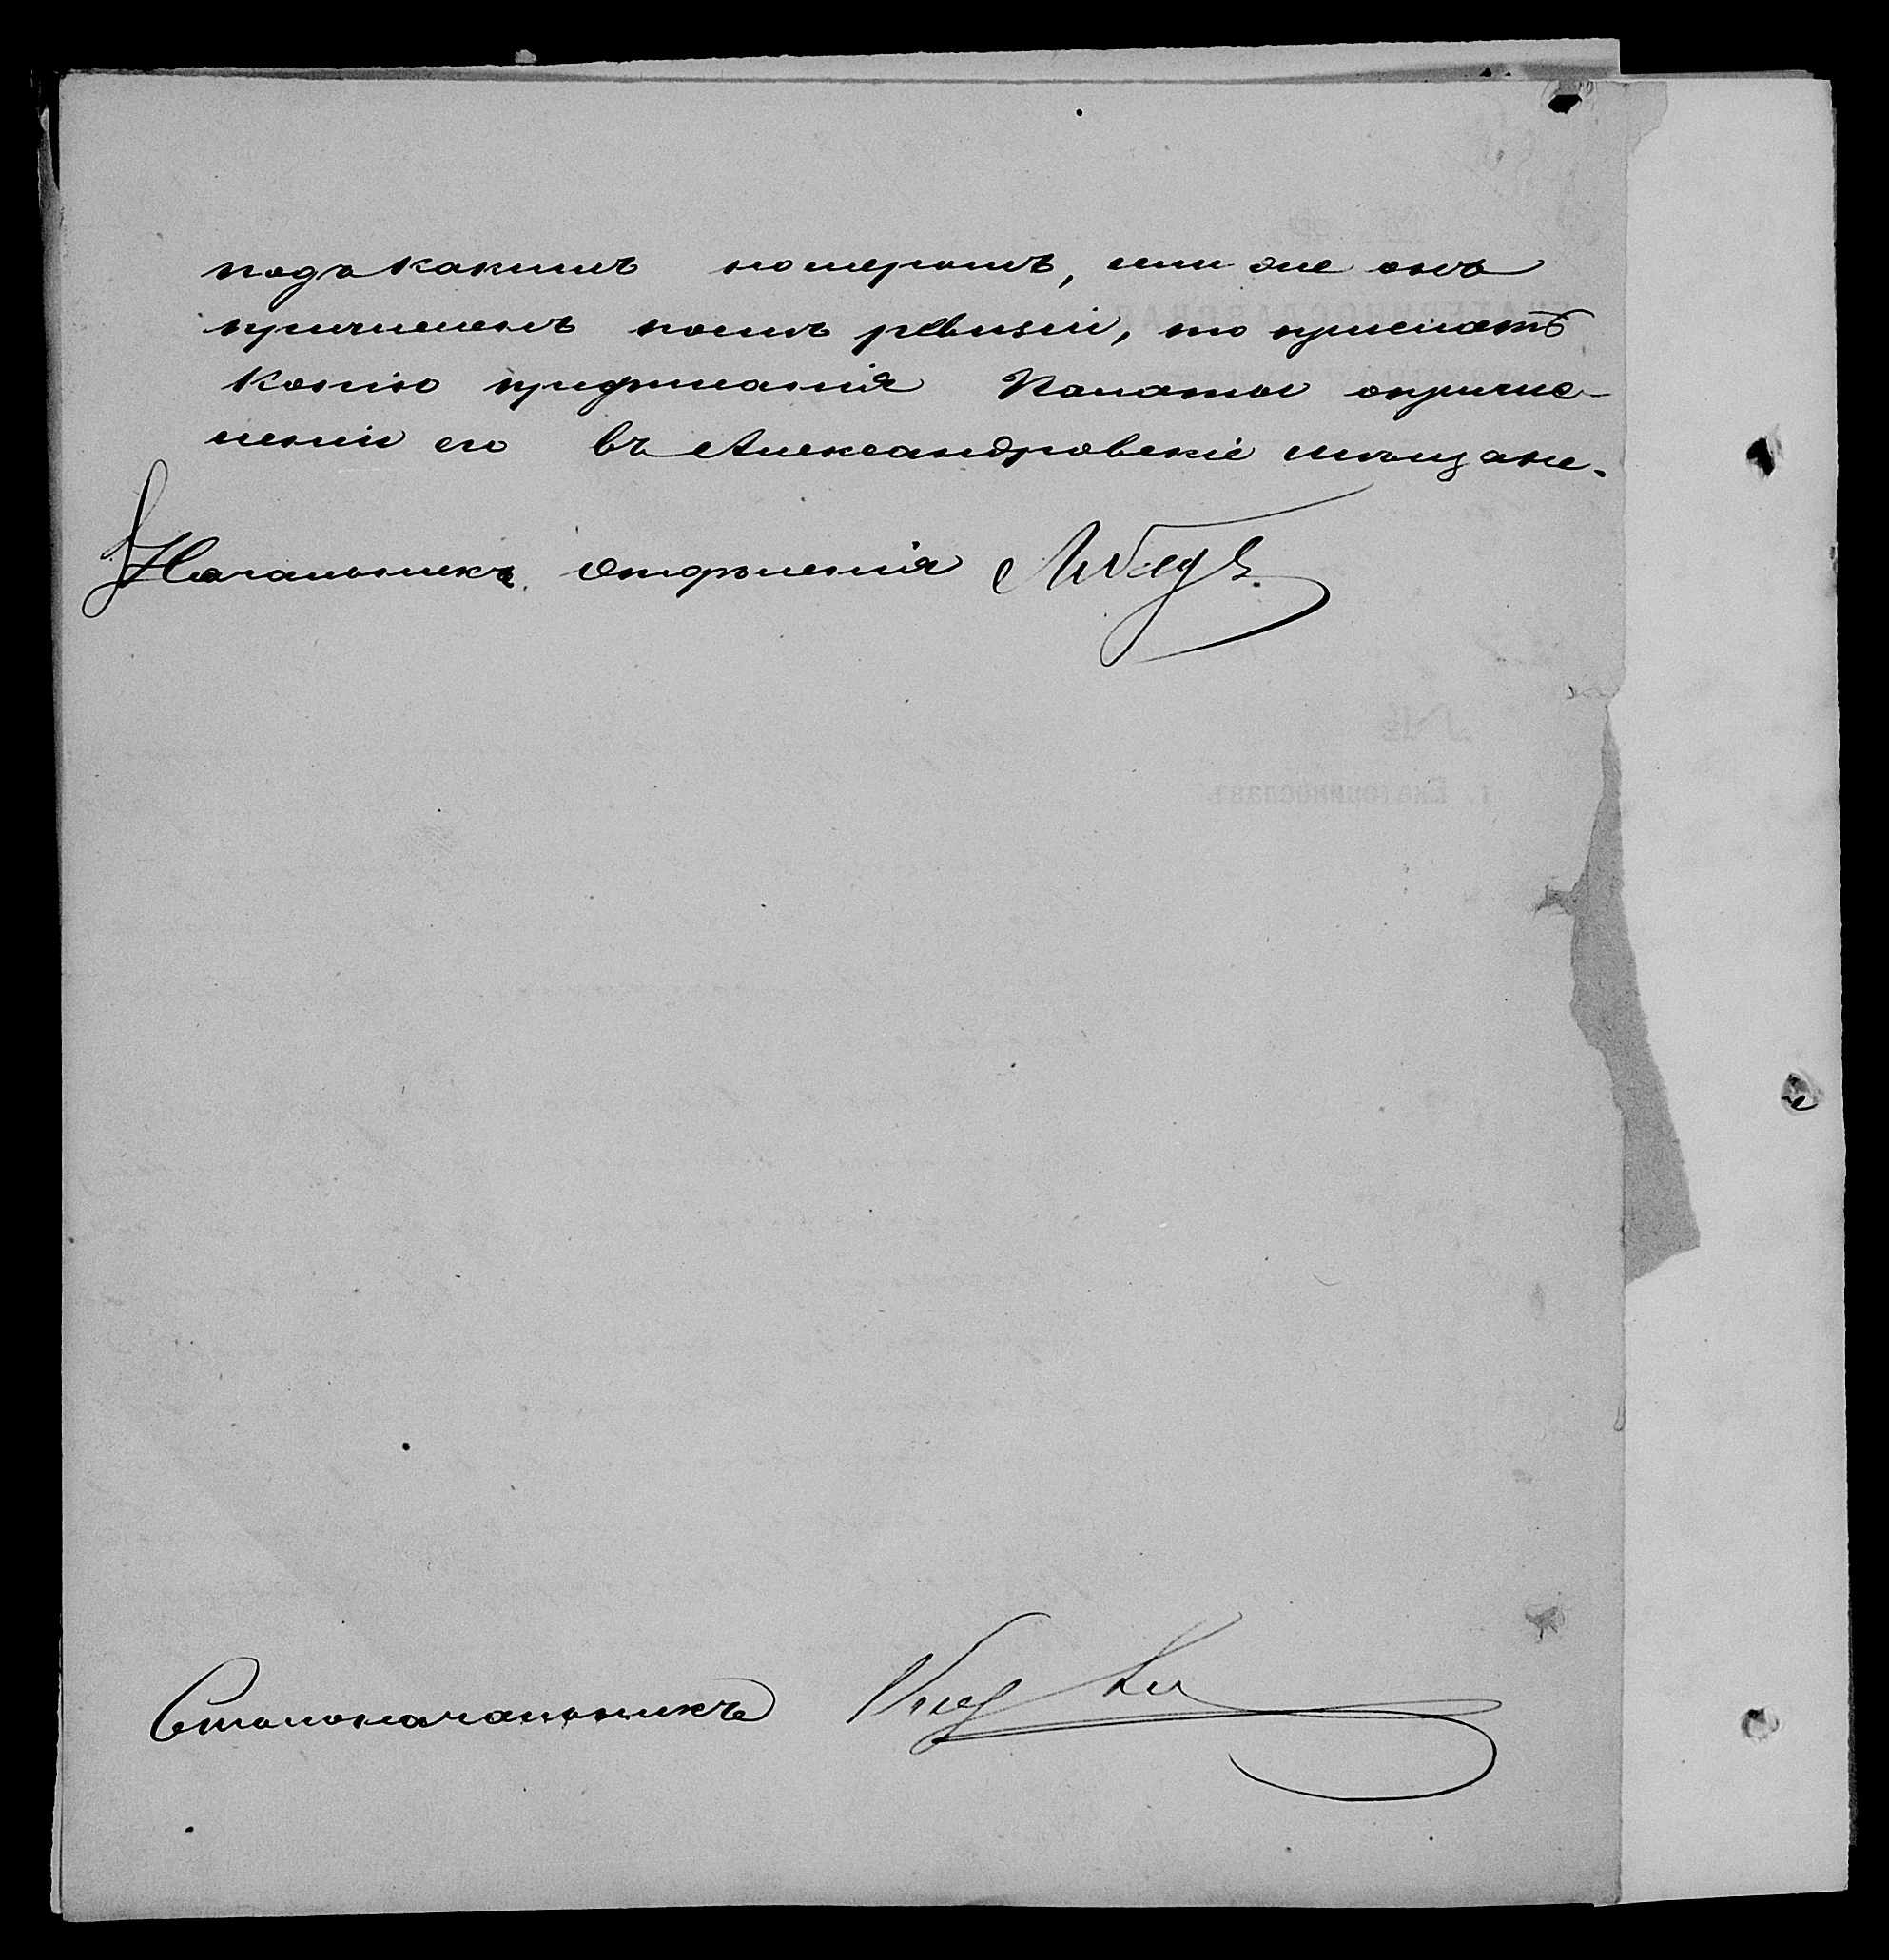 подъ какимъ номеромъ, если же онъ
причисленъ послѣ ревизіи, то прислать
копію предписанія Палаты опричис-
леніи его въ Александровскіе мѣщане.
Начальникъ Отдѣленія
Столоначальникъ
г. Екатеринославъ